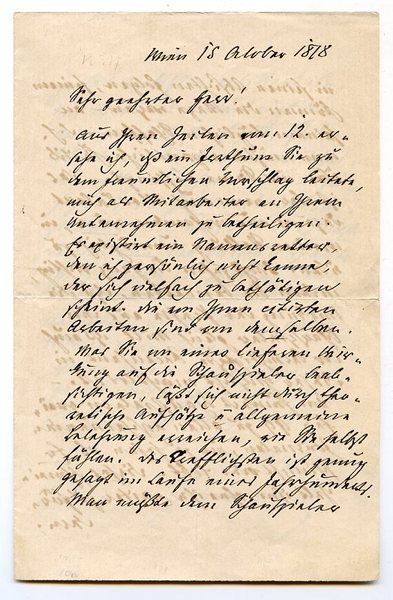 Wien 18 October 1878
Sehr geehrter Herr!
Aus Ihren Zeilen vom 12. er-
sehe ich, daß ein Irrthum Sie zu
dem freundlichen Vorschlag leitete,
mich als Mitarbeiter an Ihrem
Unternehmen zu betheiligen.
Es existirt ein Namensvetter,
den ich persönlich nicht kenne,
der sich vielfach zu bethätigen
scheint. die von Ihnen citirten
Arbeiten sind von demselben.
Was Sie von eines tieferen Wir-
kung auf die Schauspieler beab-
sichtigen, läßt sich nicht durch theo-
retische Aufsätze u allgemeine
Belehrung erreichen, wie Sie selbst
fühlen. des Trefflichsten ist genug
gesagt im Laufe eines Jahrhunderts.
Man müßte dem Schauspieler